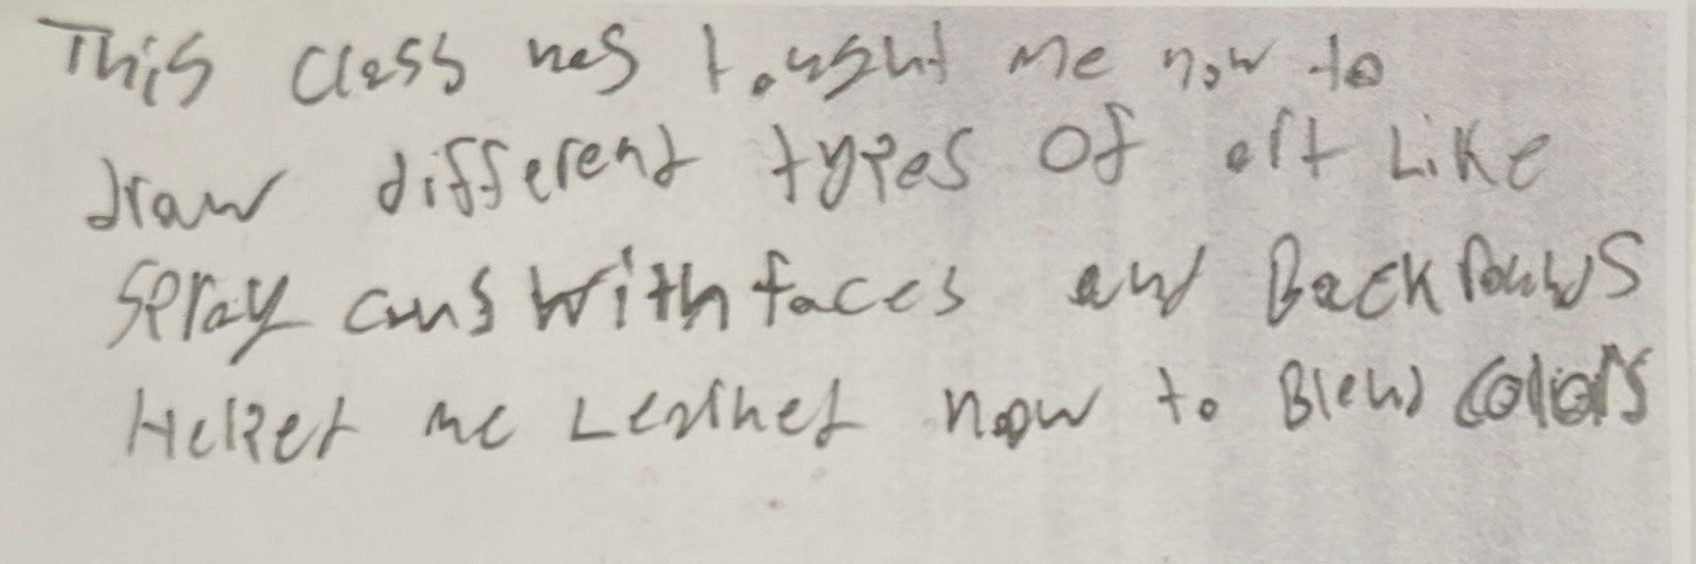 This class has tought me how to
draw different types of art Like
Spray cans with faces and Backrounds
Helped me Learned how to Blend colors